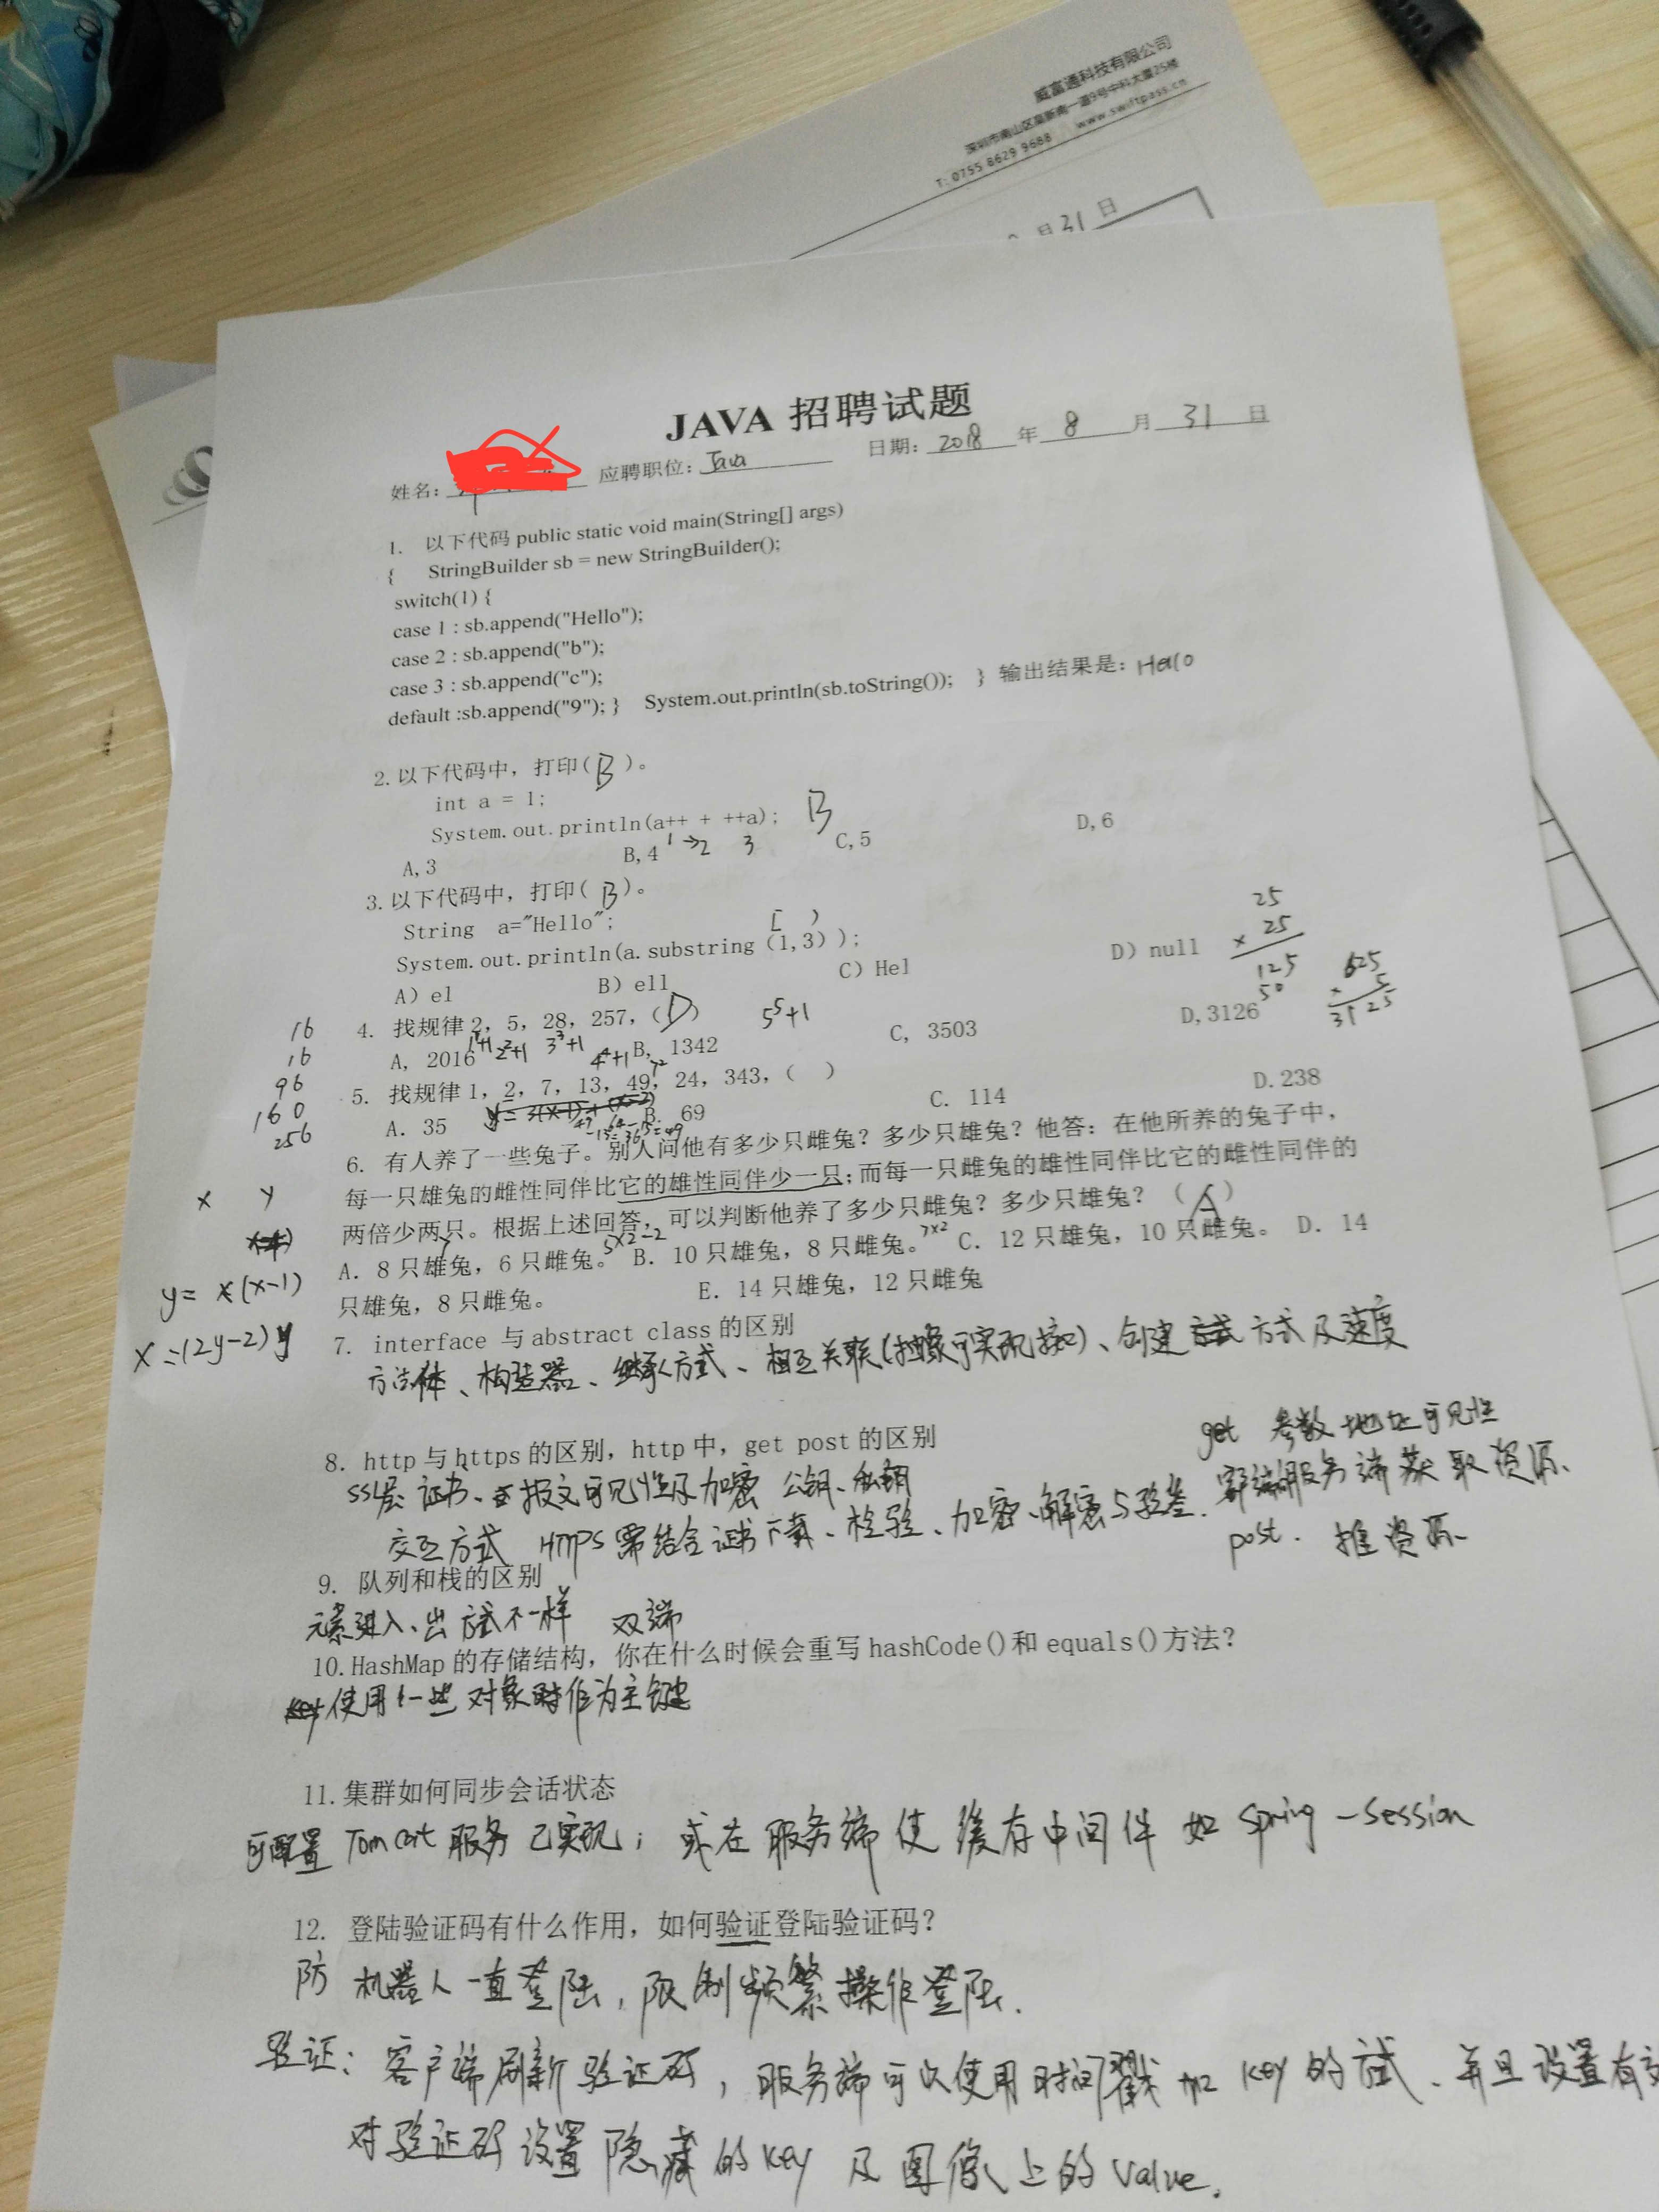 威富通科技有限公司
深圳市南山区高新南一道9号中科大厦25楼
T: 0755 8629 9688 www.swiftpass.cn
月 31 日
JAVA 招聘试题
姓名: 应聘职位: Java 日期: 2018 年 8 月 31 日
1. 以下代码 public static void main(String[] args)
{ StringBuilder sb = new StringBuilder();
switch(1) {
case 1 : sb.append("Hello");
case 2 : sb.append("b");
case 3 : sb.append("c");
default :sb.append("9"); } System.out.println(sb.toString()); } 输出结果是: Hello
2. 以下代码中, 打印( B )。
int a = 1;
System.out.println(a++ + ++a); B
1 →2 3
A, 3 B, 4 C, 5 D, 6
3. 以下代码中, 打印( B )。
String a="Hello";
[ )
System.out.println(a.substring (1,3) );
A) el B) ell C) Hel D) null
25
× 25
125
50
625
× 5
3125
4. 找规律 2, 5, 28, 257, ( D ) 5⁵+1
1¹+1 2²+1 3³+1 4⁴+1
A, 2016 B, 1342 C, 3503 D, 3126
16
16
96
160
256
5. 找规律 1, 2, 7, 13, 49, 24, 343, ( )
7²
A. 35 B. 69 C. 114 D. 238
6. 有人养了一些兔子。别人问他有多少只雌兔? 多少只雄兔? 他答: 在他所养的兔子中,
每一只雄兔的雌性同伴比它的雄性同伴少一只; 而每一只雌兔的雄性同伴比它的雌性同伴的
两倍少两只。根据上述回答, 可以判断他养了多少只雌兔? 多少只雄兔? ( A )
5×2-2 7×2
A. 8 只雄兔, 6 只雌兔。 B. 10 只雄兔, 8 只雌兔。 C. 12 只雄兔, 10 只雌兔。 D. 14
只雄兔, 8 只雌兔。 E. 14 只雄兔, 12 只雌兔
x y
y = x(x-1)
x = (2y-2)y
7. interface 与 abstract class 的区别
方法体、构造器、继承方式、相互关联(抽象可实现接口)、创建方式及速度
8. http 与 https 的区别, http 中, get post 的区别
SSL层 证书、报文可见性及加密 公钥、私钥
交互方式 HTTPS 需结合证书下载、检验、加密、解密与验签.
get 参数地址可见性
服务端获取资源、
post. 推资源
9. 队列和栈的区别
元素进入、出 方式不一样 双端
10.HashMap 的存储结构, 你在什么时候会重写 hashCode()和 equals()方法?
使用一些对象时作为主键
11.集群如何同步会话状态
可配置 Tomcat 服务 已实现; 或在服务端 使 缓存中间件 如 spring-session
12. 登陆验证码有什么作用, 如何验证登陆验证码?
防 机器人一直登陆, 限制频繁操作登陆.
验证: 客户端刷新验证码, 服务端可以使用时间戳 加 key 的方式、并且设置有效
对验证码设置隐藏的 key 及图像上的 value.